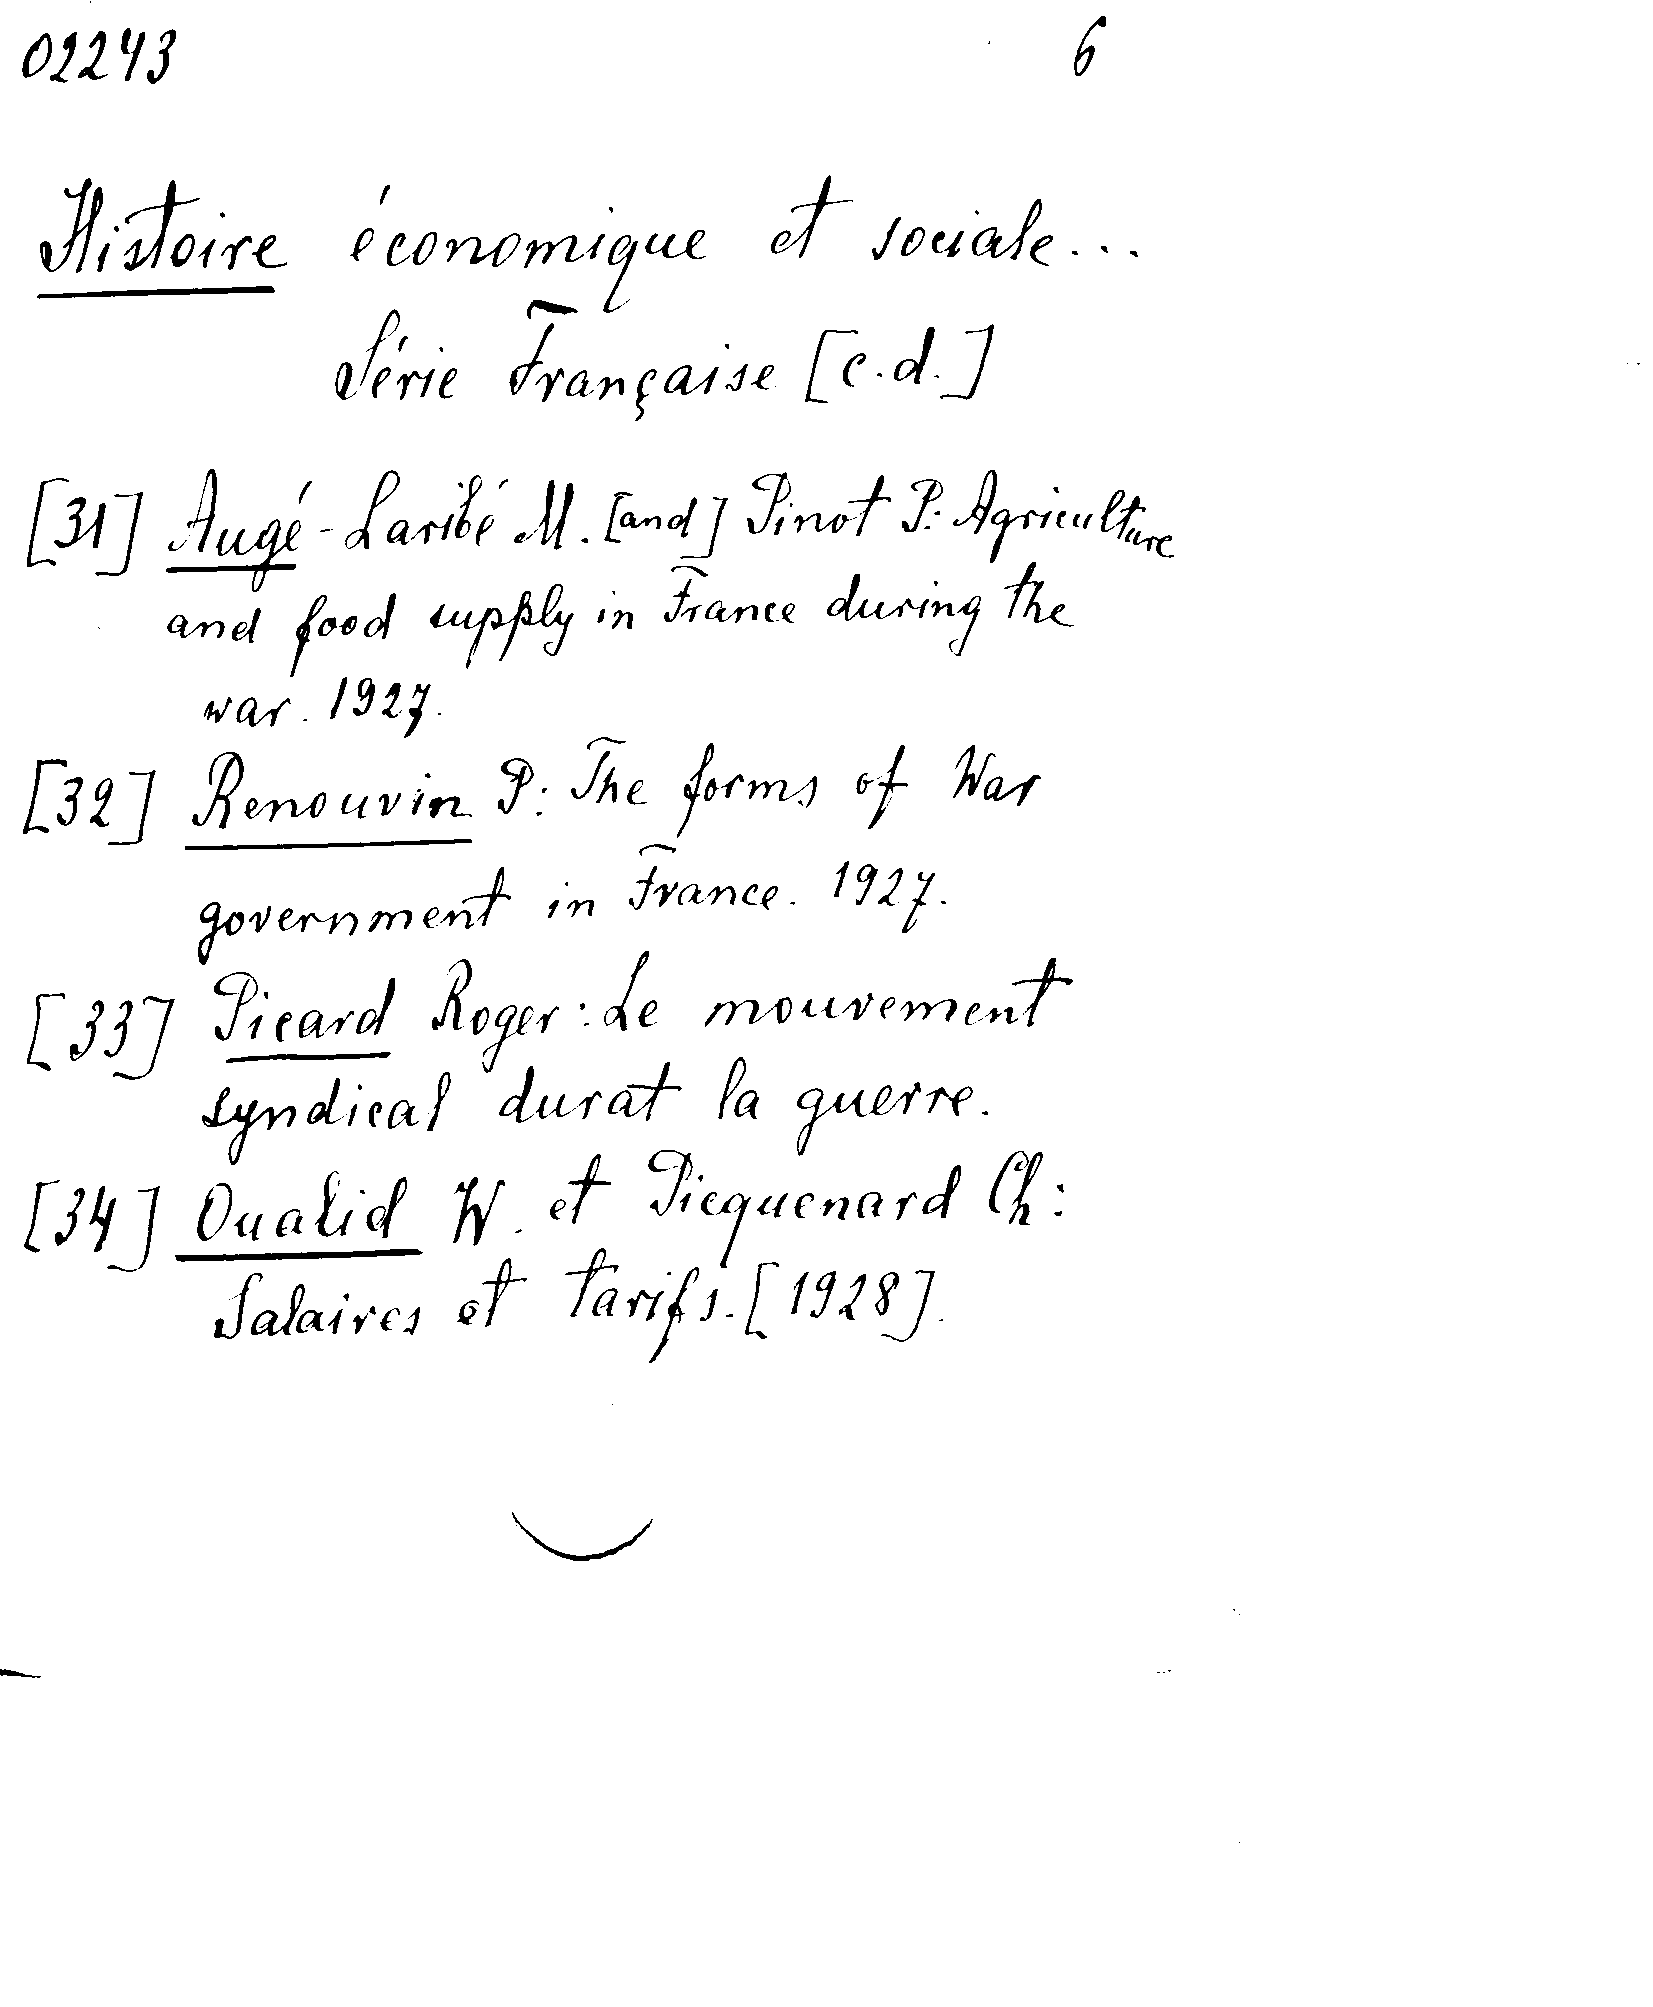 02243 6
Histoire économique et sociale...
Série Française [c.d.]
[31] Augé-Laribé M. [and] Pinot P: Agriculture
and food supply in France during the
war. 1927.
[32] Renouvin P: The forms of War
government in France. 1927.
[33] Picard Roger: Le mouvement
syndical durat la guerre.
[34] Oualid W. et Picquenard Ch:
Salaires et tarifs. [1928].